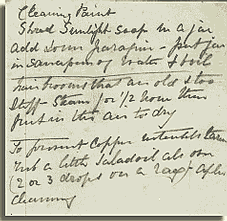 Cleaning Paint
Shred Sunlight soap in a jar
add some parafin - put jar
in saucepan of water & boil
hair brooms that are old & too
stiff - steam for 1/2 hour then
put in the air to dry
To prevent Copper utensils
rub a little Saladoil also on
(2 or 3 drops on a rag) after
cleaning